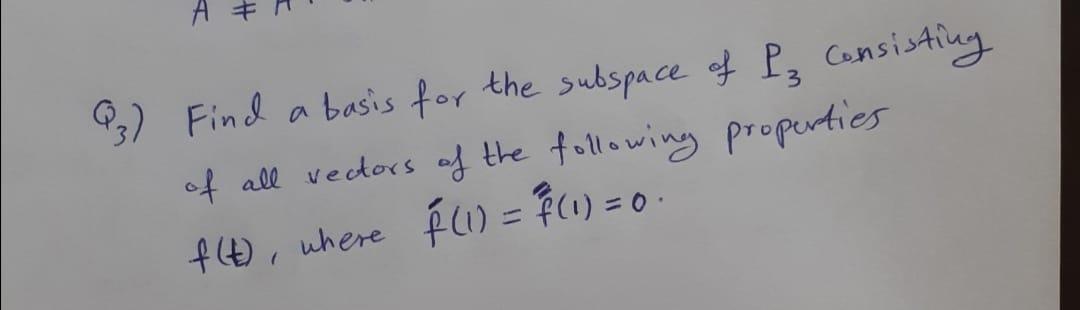 A ≠
Q₃) Find a basis for the subspace of P₃ Consisting
of all vectors of the following properties
f(t), where f′(1) = f″(1) = 0.